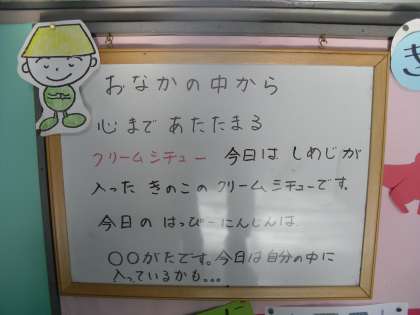 おなかの中から
心まで あたたまる
クリームシチュー 今日は しめじが
入った きのこの クリームシチューです。
今日の はっぴーにんじんは
○○がたです。今日は自分の中に
入っているかも...
き